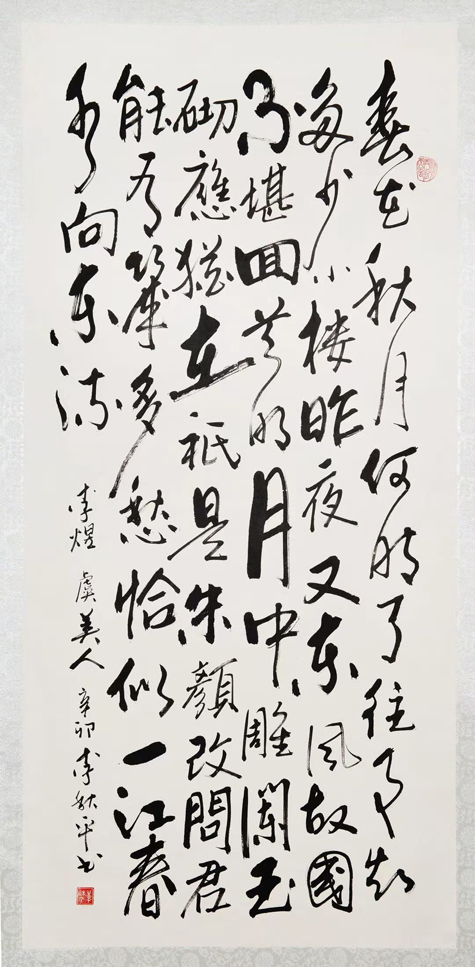 春花秋月何時了往事知
多少小楼昨夜又東風故國
不堪回首明月中雕闌玉
砌應猶在祇是朱顏改問君
能有幾多愁恰似一江春
水向東流 李煜 虞美人 辛卯 李秋平书